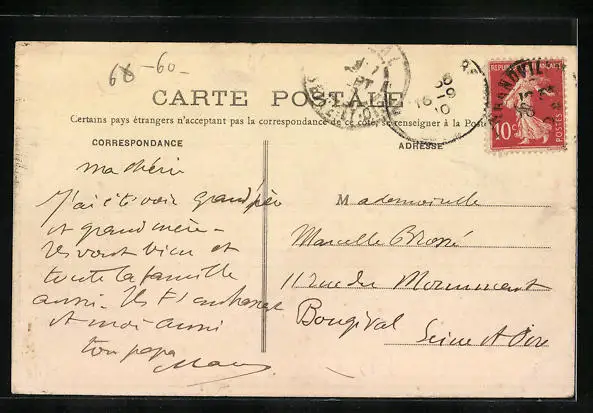 68 -60-
CARTE POSTALE
Certains pays étrangers n'acceptant pas la correspondance de ce côté, se renseigner à la Poste
CORRESPONDANCE
ADRESSE
RÉPUBLIQUE FRANÇAISE
10c
POSTES
ma chérie
J'ai été voir grand père
et grand mère -
Ils vont bien et
toute la famille
aussi - Ils t'embrassent
et moi aussi
ton papa
Mademoiselle
Marcelle Brossé
11 rue du Monument
Bougival Seine et Oise